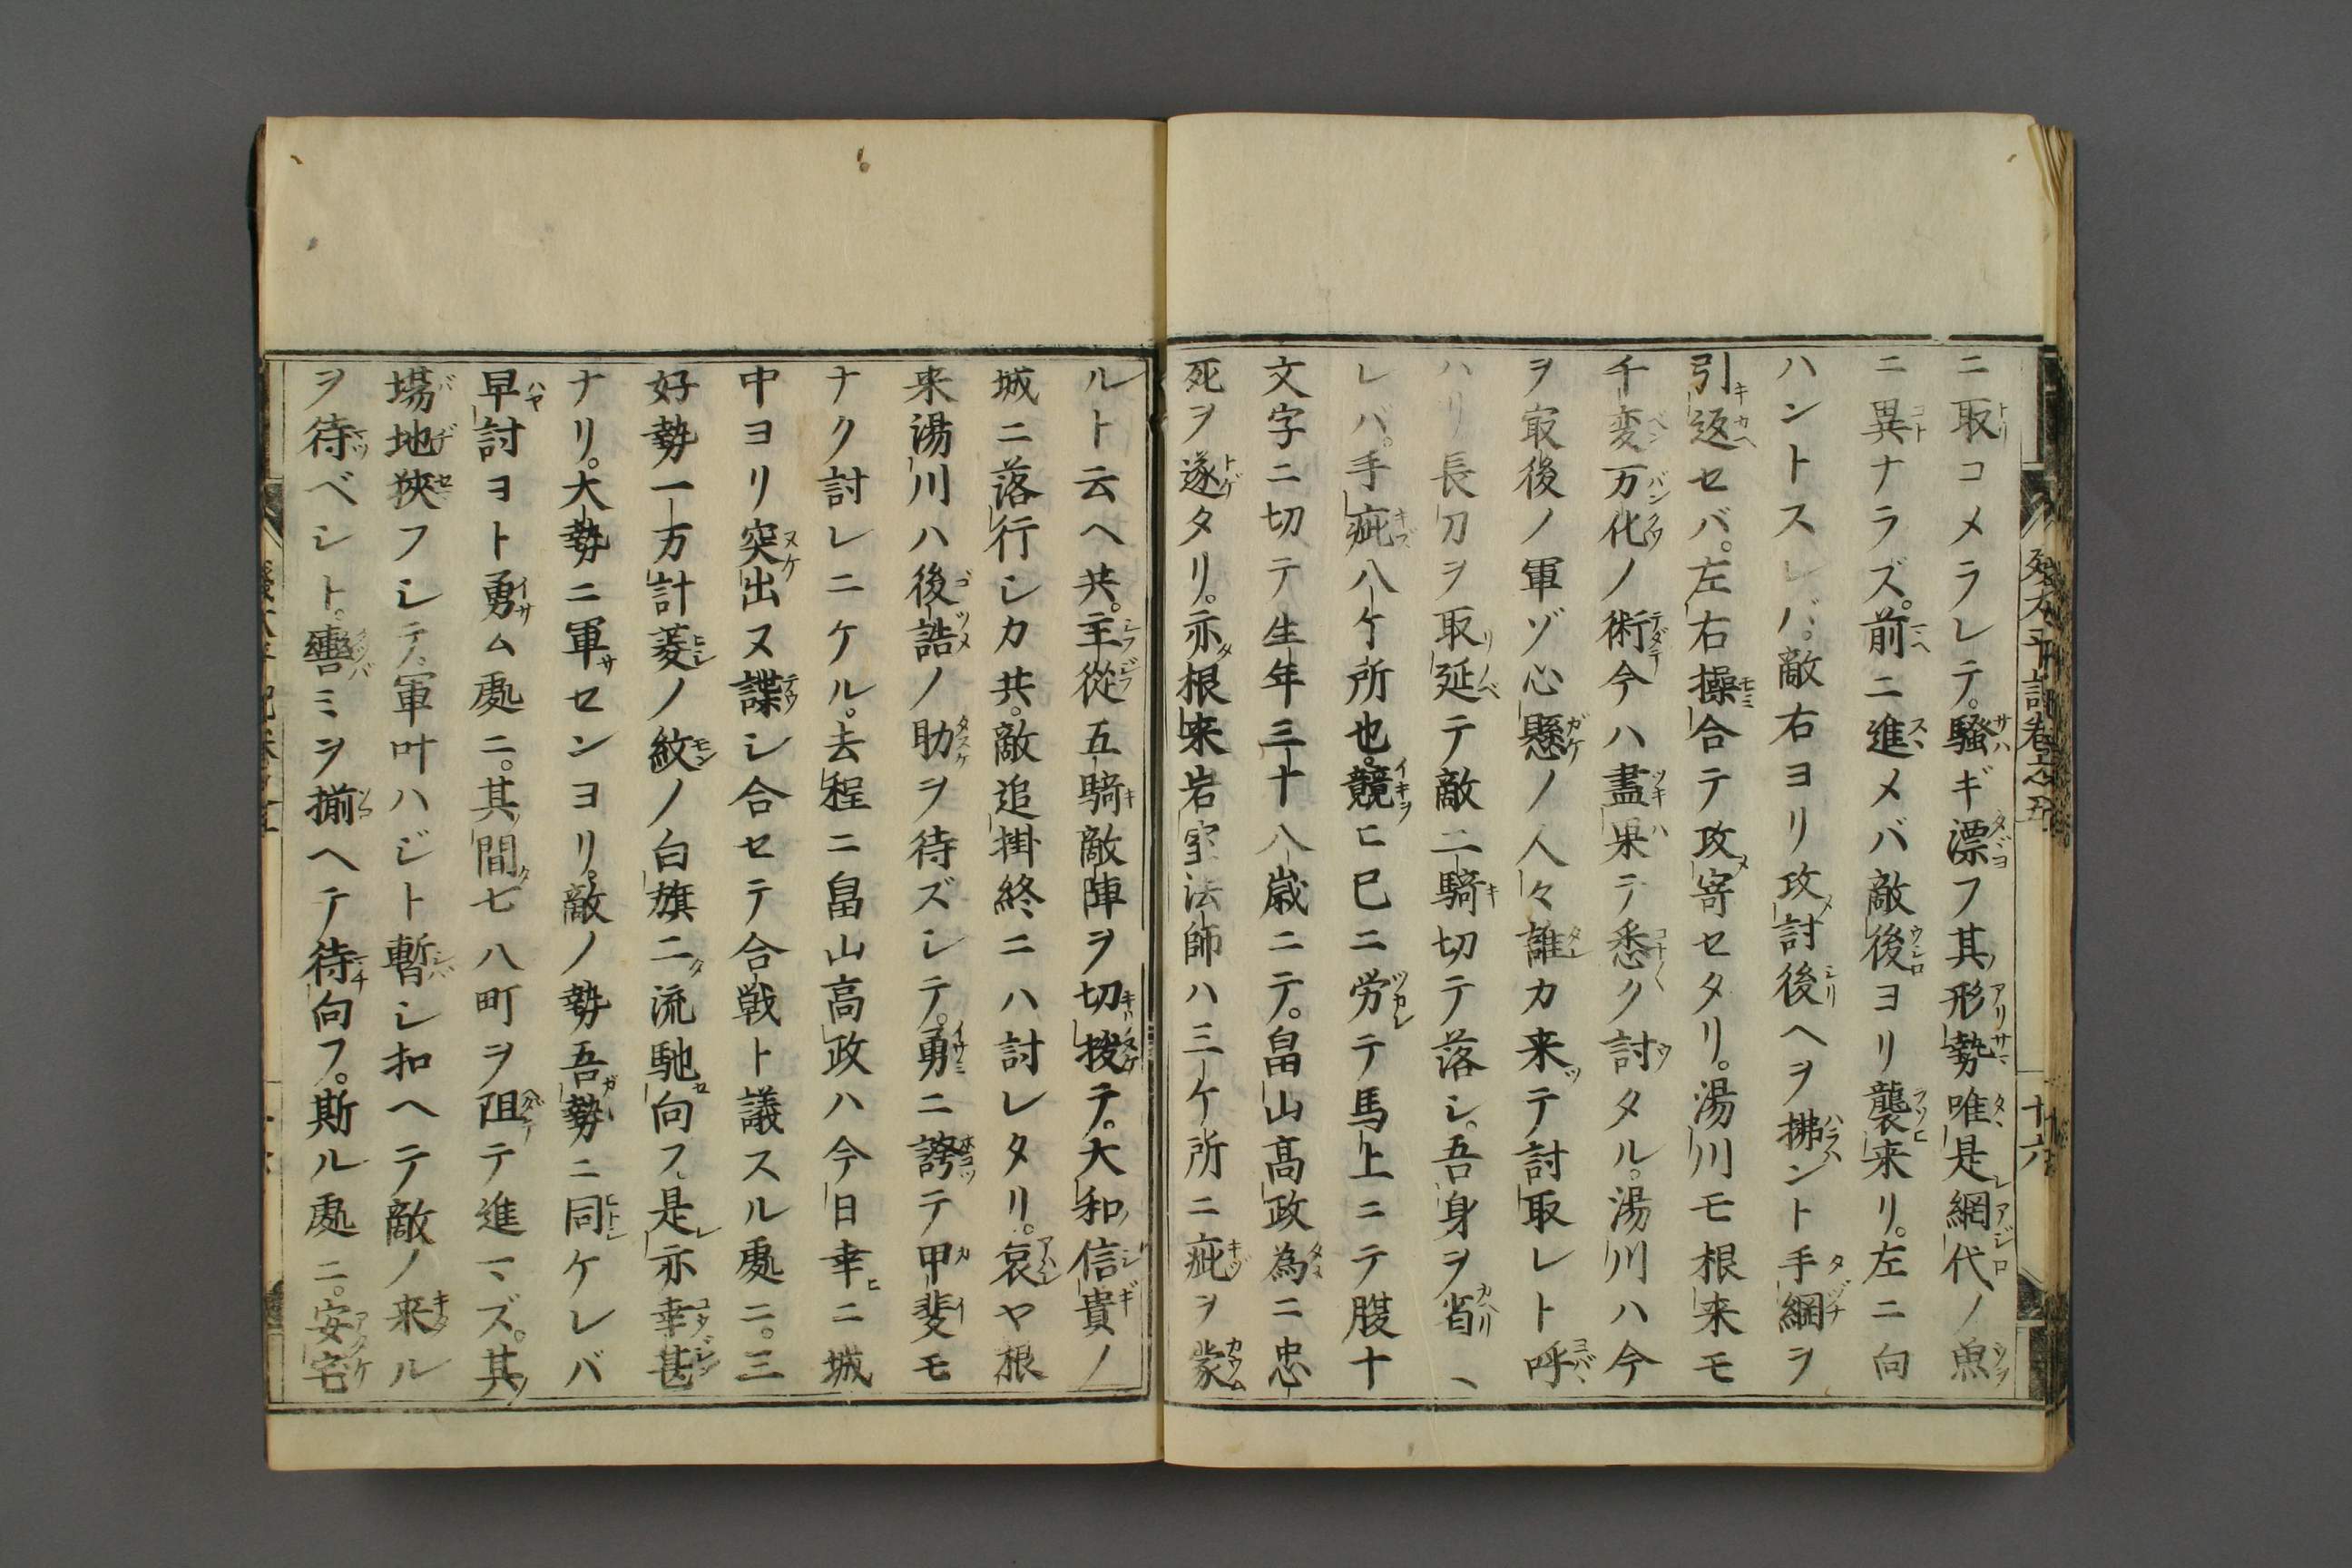 ニ取コメラレテ。騒ギ漂フ其形勢唯是網代ノ魚
ニ異ナラズ。前ニ進メバ敵後ヨリ襲来リ。左ニ向
ハントスレバ。敵右ヨリ攻討後ヘヲ拂ント手綱ヲ
引返セバ。左右操合テ攻寄セタリ。湯川モ根来モ
千変万化ノ術今ハ盡果テ悉ク討タル。湯川ハ今
ヲ㝡後ノ軍ゾ心懸ノ人々誰カ来テ討取レト呼
ハリ長刀ヲ取延テ敵二騎切テ落シ。吾身ヲ省ヽ
レバ。手疵八ケ所也。競ヒ已ニ労テ馬上ニテ腹十
文字ニ切テ生年三十八歳ニテ。畠山高政為ニ忠
死ヲ遂タリ。亦根来岩室法師ハ三ケ所ニ疵ヲ蒙
ルト云ヘ共。主從五騎敵陣ヲ切拔テ。大和信貴ノ
城ニ落行シカ共。敵追掛終ニハ討レタリ。哀ヤ根
来湯川ハ後詰ノ助ヲ待ズシテ。勇ニ誇テ甲斐モ
ナク討レニケル。去程ニ畠山高政ハ今日幸ニ城
中ヨリ突出ス諜シ合セテ合戦ト議スル處ニ。三
好勢一方計菱ノ紋ノ白旗二流馳向フ。是亦幸甚
ナリ。大勢ニ軍センヨリ。敵ノ勢吾勢ニ同ケレバ
早討ヨト勇ム處ニ。其間七八町ヲ阻テ進マズ。其
場地狹フシテ。軍叶ハジト暫シ扣ヘテ敵ノ来ル
ヲ待ベシト。轡ミヲ揃ヘテ待向フ。斯ル處ニ。安宅
十六